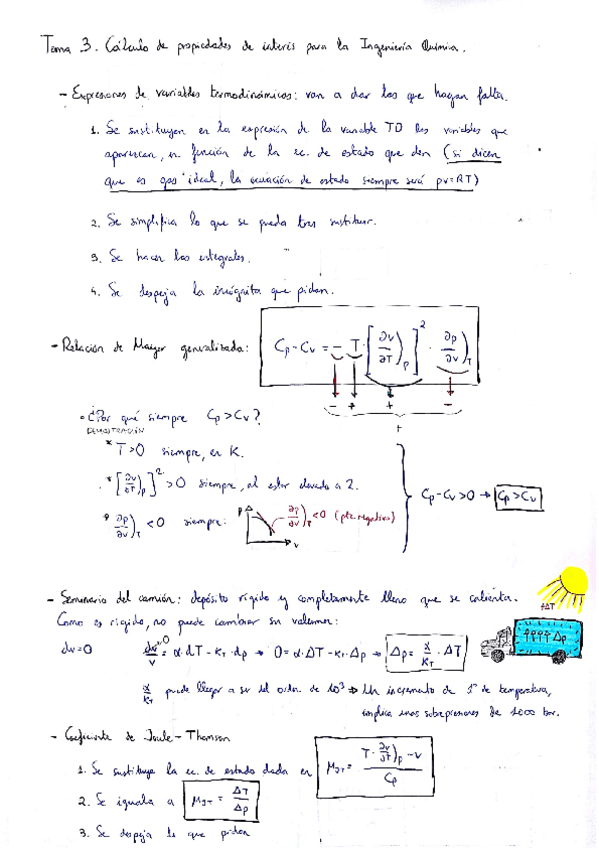 Tema 3. Cálculo de propiedades de interés para la Ingeniería Química.
- Expresiones de variables termodinámicas: van a dar las que hagan falta.
1. Se sustituyen en la expresión de la variable TD las variables que
aparezcan, en función de la ec. de estado que den (si dicen
que es gas ideal, la ecuación de estado siempre será pv=RT)
2. Se simplifica lo que se pueda tras sustituir.
3. Se hacen las integrales.
4. Se despeja la incógnita que pidan.
- Relación de Mayer generalizada: Cp - Cv = - T · [∂v/∂T)p]² · ∂p/∂v)T
- + + -
+
• ¿Por qué siempre Cp > Cv?
DEMOSTRACIÓN
* T>0 siempre, en K.
* [∂v/∂T)p]² >0 siempre, al estar elevado a 2.
Cp-Cv>0 → Cp>Cv
* ∂p/∂v)T <0 siempre: P v ∂p/∂v)T <0 (pte. negativa)
- Seminario del camión: depósito rígido y completamente lleno que se calienta.
Como es rígido, no puede cambiar su volumen:
↑ΔT
↑↑↑↑ Δp
dv=0 dv/v = α·dT - κT·dp → 0 = α·ΔT - κT·Δp → Δp = α/κT · ΔT
α/κT puede llegar a ser del orden de 10³ → Un incremento de 1° de temperatura,
implica unas sobrepresiones de 1000 bar.
- Coeficiente de Joule-Thomson
1. Se sustituye la ec. de estado dada en μJT = (T · ∂v/∂T)p - v)/Cp
2. Se iguala a μJT = ΔT/Δp
3. Se despeja lo que pidan